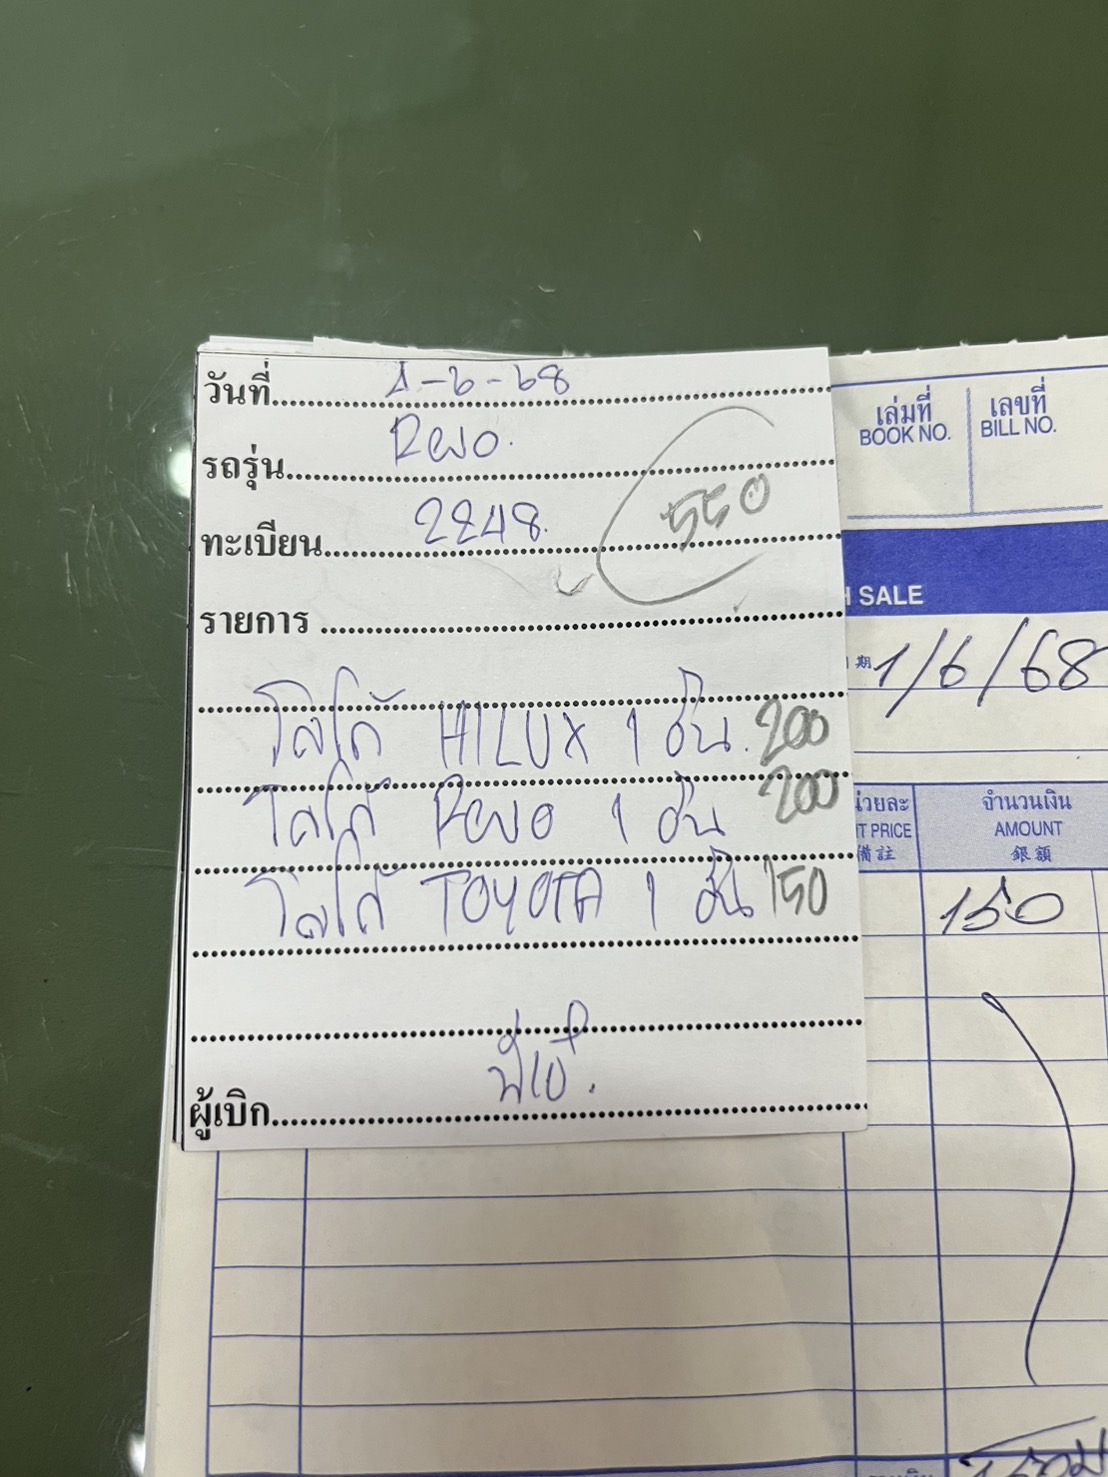 วันที่ 1-6-68
รถรุ่น Revo.
ทะเบียน 2248.
550
รายการ
โลโก้ HILUX 1 ชิ้น. 200
โลโก้ Revo 1 ชิ้น 200
โลโก้ TOYOTA 1 ชิ้น 150
ผู้เบิก
เล่มที่ เลขที่
BOOK NO. BILL NO.
SALE
期 1/6/68
จำนวนเงิน
T PRICE AMOUNT
備註 銀額
150